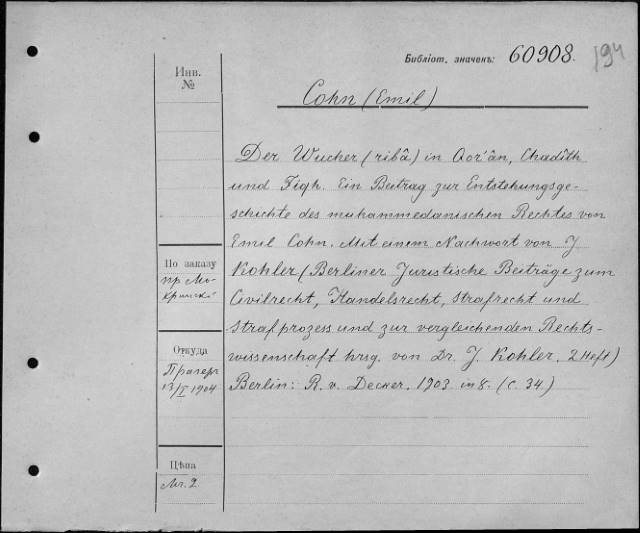 Библіот. значенъ: 60908. 194
Инв.
№
Cohn (Emil)
Der Wucher (ribâ) in Qor'ân, Chadîth
und Fiqh. Ein Beitrag zur Entstehungsge-
schichte des muhammedanischen Rechtes von
Emil Cohn. Mit einem Nachwort von J
Kohler (Berliner Juristische Beiträge zum
Civilrecht, Handelsrecht, Strafrecht und
Strafprozess und zur vergleichenden Rechts-
wissenschaft hrsg. von Dr. J. Kohler. 2 Heft)
Berlin: R. v. Decker. 1903 in 8. (С. 34)
По заказу
пр
Откуда
Прагеръ
13/I 1904
Цѣна
Mr. 2